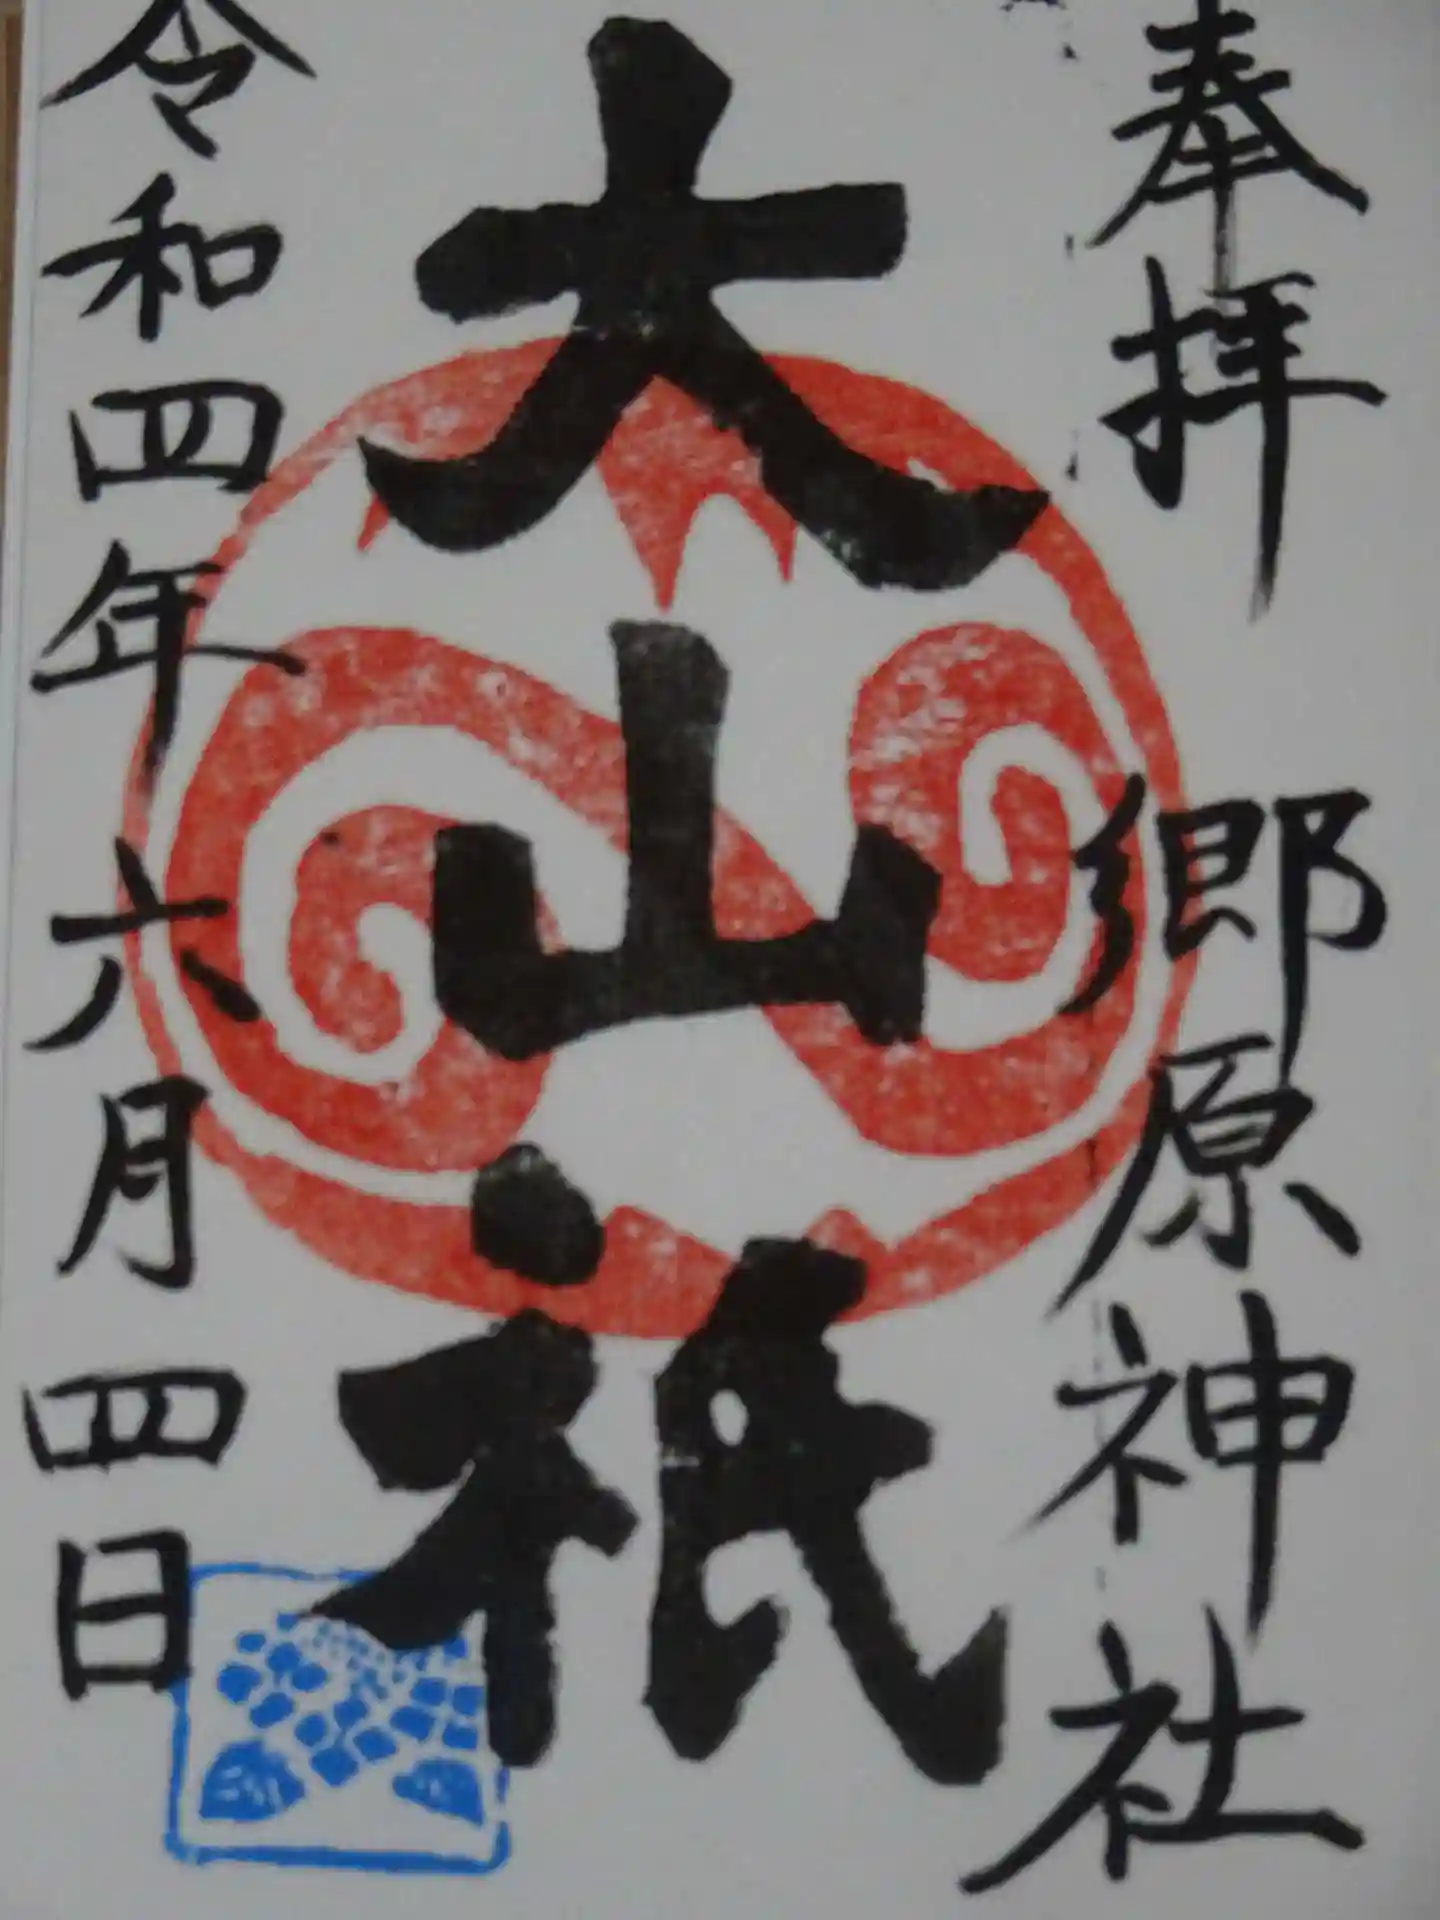 奉拝
郷原神社
大山祇
令和四年六月四日